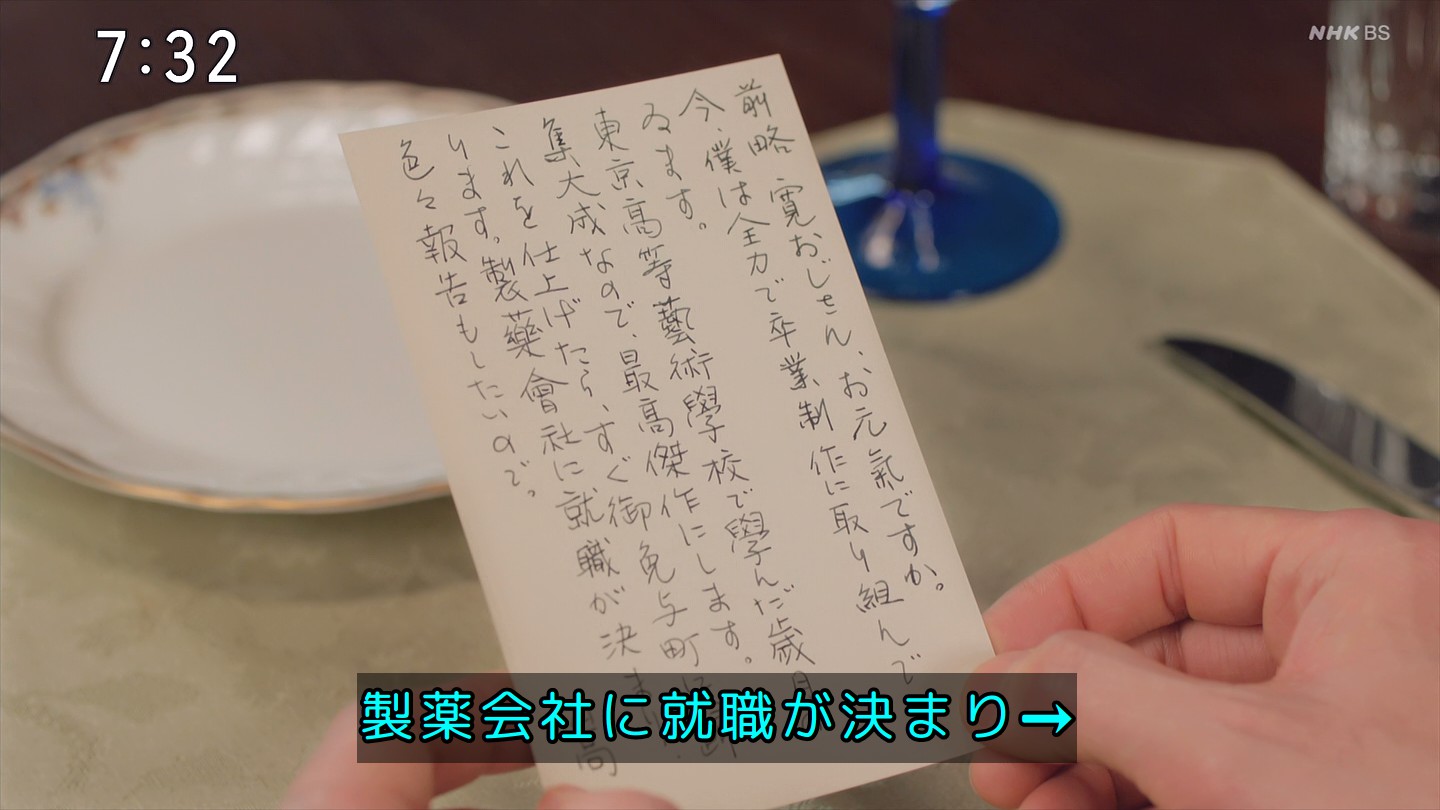 7:32
NHK BS
前略 寛おじさん、お元氣ですか。
今、僕は全力で卒業制作に取り組んで
ゐます。
東京高等藝術學校で學んだ歳月
集大成なので、最高傑作にします。
これを仕上げたら、すぐ御免与町に
ります。製藥會社に就職が決ま
色々報告もしたいので。
製薬会社に就職が決まり→